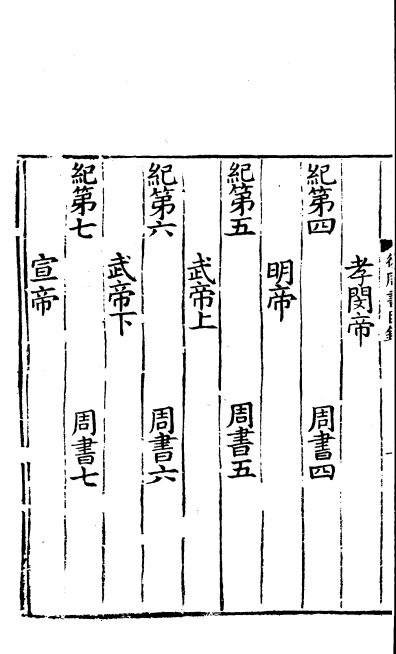 孝閔帝
紀第四 周書四
明帝
紀第五 周書五
武帝上
紀第六 周書六
武帝下
紀第七 周書七
宣帝